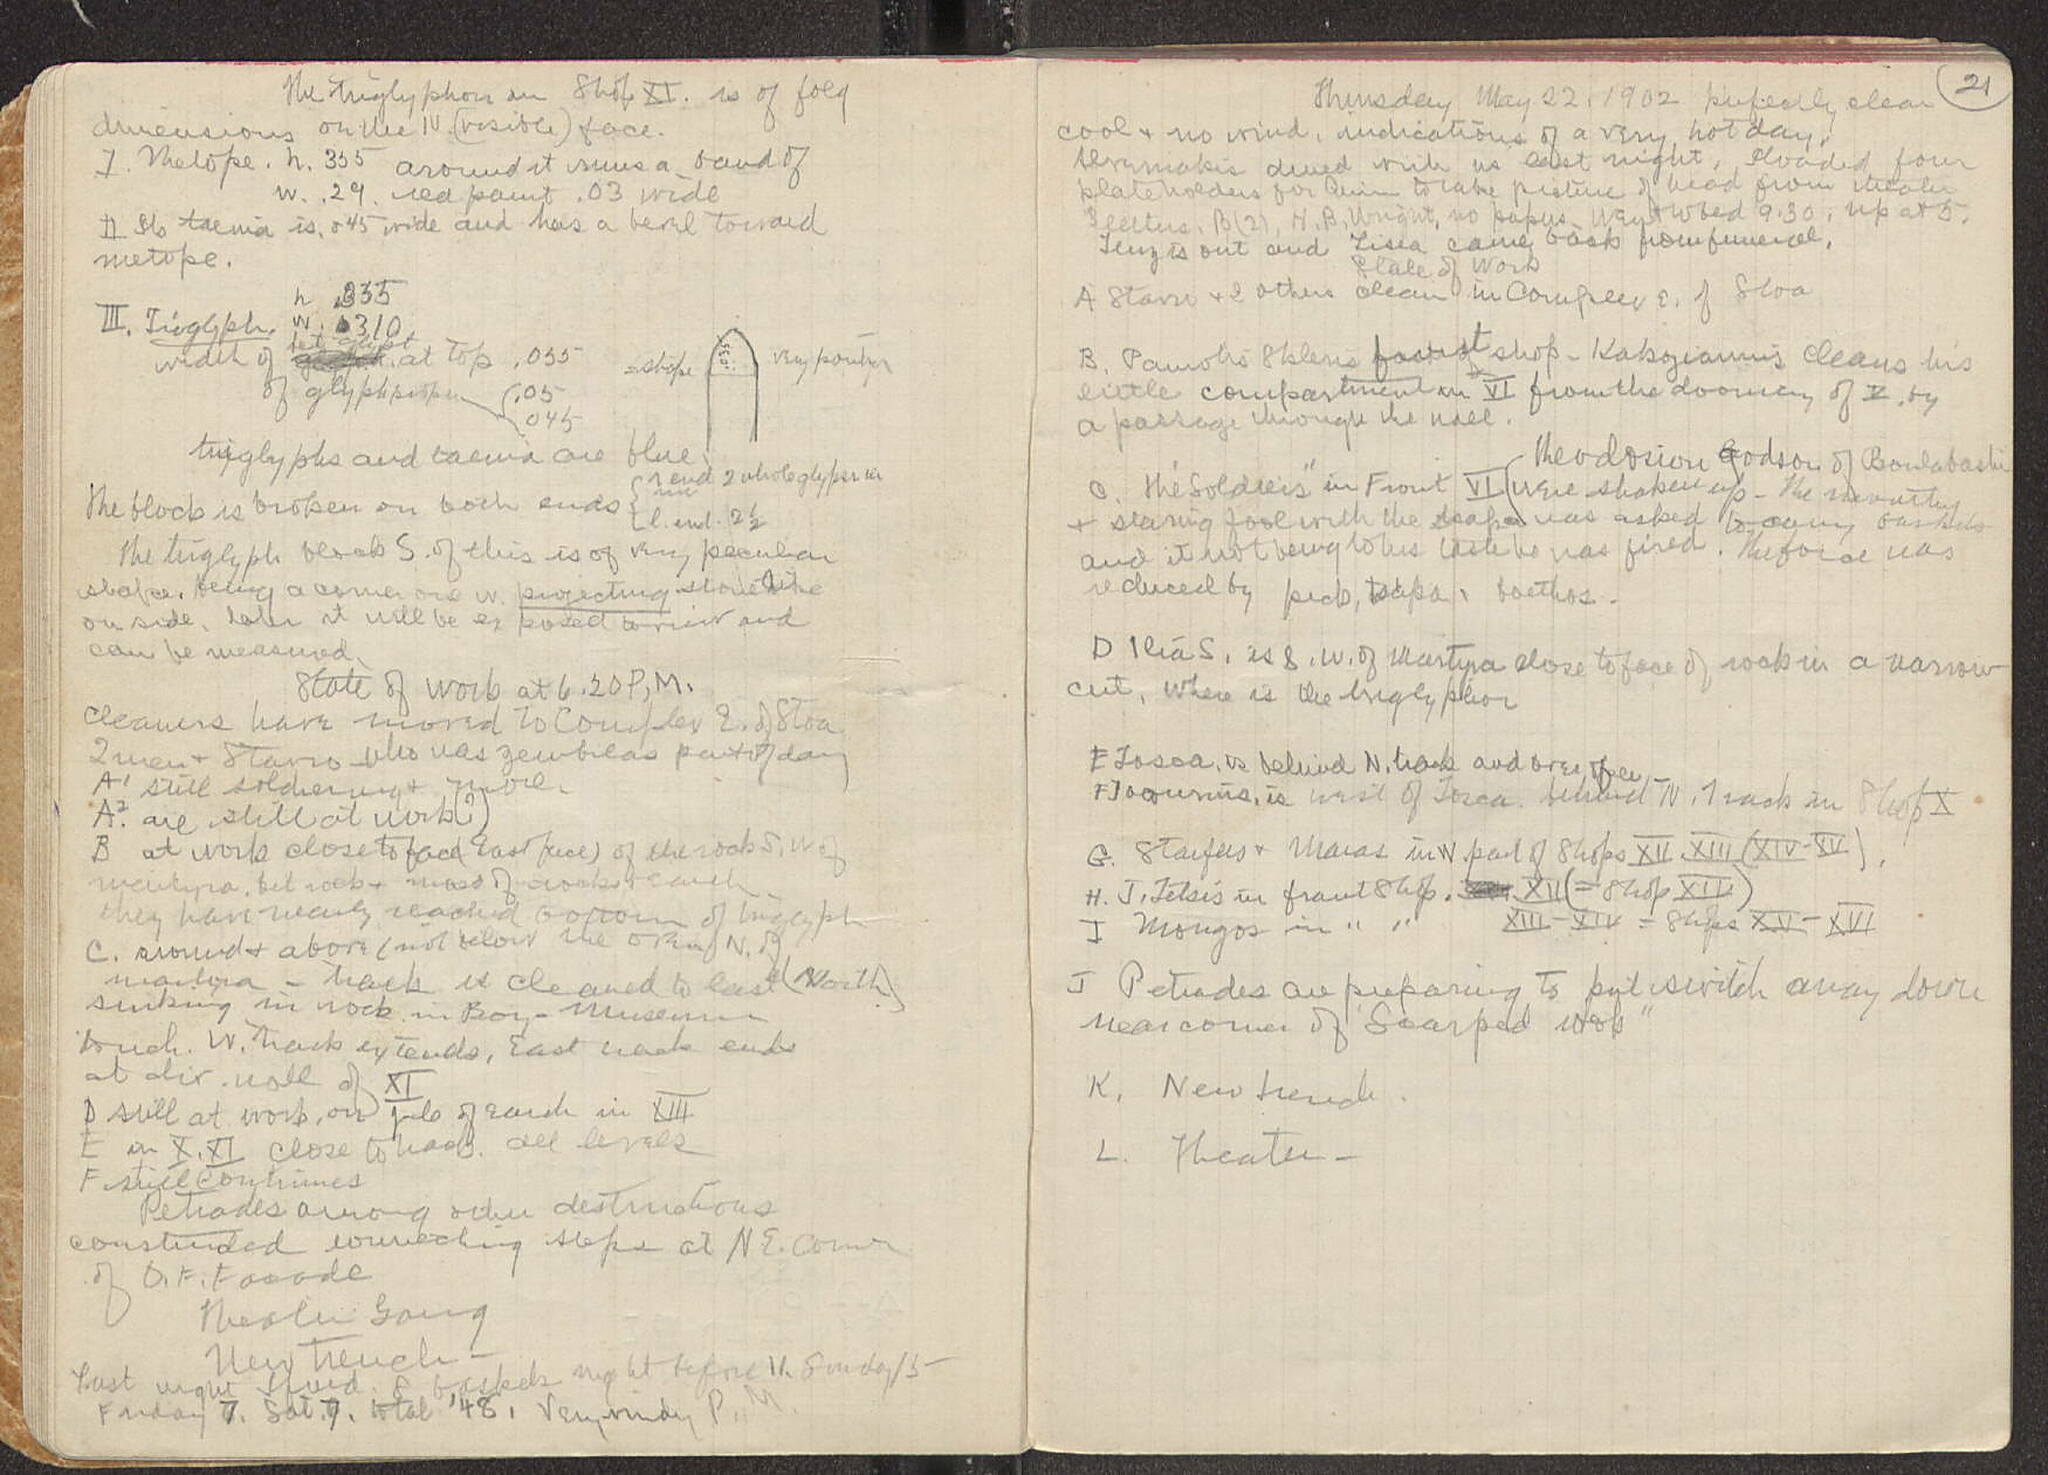 The triglyphon on Shop XI. is of folg
dimensions on the N. (visible) face.
I. Metope. h. 355 around it runs a band of
w. .29. red paint .03 wide
II Its taenia is .045 wide and has a bevel toward
metope.
III. Triglyph. h .335
w. .310
width of at top .055
of glyph proper .05
.045
= shape .035 very pointy
triglyphs and taenia are blue.
The block is broken on both ends { r end 2 whole glyphs
l. end. 2½
The triglyph block S. of this is of very peculiar
shape, being a corner one w. projecting stone
on side. Later it will be exposed to view and
can be measured.
State of work at 6.20 P.M.
Cleaners have moved to Complex E. of Stoa
2 men + Stavro who was zembilas part of day
A¹ still soldiering + more.
A². are still at work (?)
B at work close to face (East face) of the rock S.W. of
martyra, bet rock + mass of rock + earth
they have nearly reached bottom of triglyph
C. around + above (not below the oven) N. of
martyra – track is cleaned to last (North)
sinking in rock in Boy – Museum
trench. W. track extends, East track ends
at div. wall of XI
D still at work, on pile of earth in XIII
E in X, XI close to track. all levels
F. still continues
Petrades among other destructions
constructed connecting steps at NE. Corner
of O.F. Facade
Theater Gang
New Trench –
Last night fired 8 baskets night before 11. Sunday 15
Friday 7. Sat. 7. total '48. Very windy P.M.
21
Thursday May 22. 1902 perfectly clear
cool + no wind, indications of a very hot day.
dined with us last night, loaded four
plateholders for him to take picture of head from theater
Letters. B(2), H.B. Wright, no papers. Went to bed 9.30, up at 5.
is out and Lisca came back from funeral.
State of Work
A Stavro + 2 others clean in Complex E. of Stoa
B. Skleris shop – Katsgiannis cleans his
little compartment in VI from the doorway of V. by
a passage through the wall.
C. The "Soldiers" in Front VI (Theodosiou Godson of Boulabashi) were shaken up – The
+ staring fool with the tsapa was asked to carry baskets
and it not being to his taste he was fired. The force was
reduced by pick, tsapa, boethos.
D Ilia S. is S.W. of Martyra close to face of rock in a narrow
cut, where is the triglyphon
E Tosca, is behind N. track and over oven –
F is west of Tosca behind N. track in Shop X
G. + Maras in W part of Shops XII. XIII (XIV–XV).
H. J. Tetsis in front Shop. XII (= Shop XIV)
I Mongos in " " XIII–XIV = Shops XV–XVI
J Petrades are preparing to put switch away down
near corner of "Scarped rock"
K. New trench.
L. Theater –